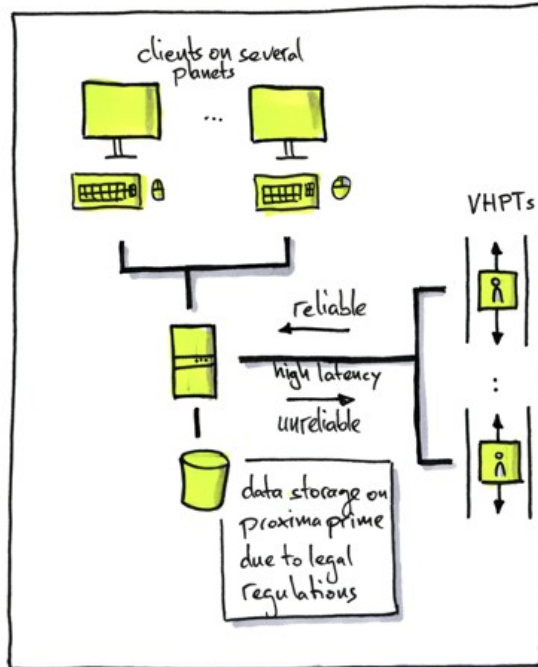 clients on several
planets
...
VHPTs
reliable
high latency
unreliable
data storage on
proxima prime
due to legal
regulations